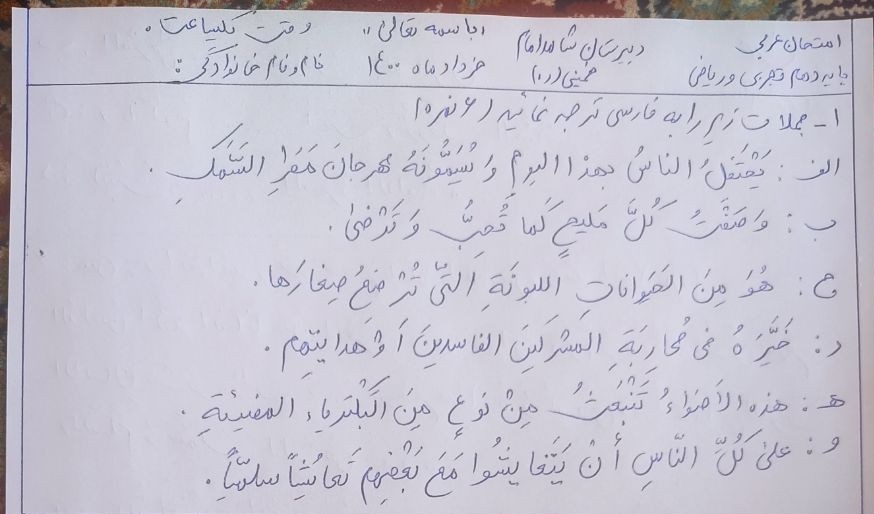 امتحان عربی دبیرستان شاهد امام باسمه تعالی وقت یکساعت.
پایه دهم تجربی و ریاضی خمینی (ره) خرداد ماه ۱۴۰۰ نام و نام خانوادگی:
۱- جملات زیر را به فارسی ترجمه نمائید (۶ نمره)
الف: یَحْتَفِلُ الناسُ بهذا الیومِ وَ یُسَمُّونَهُ مهرجانَ مَطَرِ السَّمَکِ.
ب: وَصَفْتُ کُلَّ مَلیحٍ کَما تُحِبُّ وَ تَرْضی.
ج: هُوَ مِنَ الحَیَواناتِ اللبونَةِ الَّتی تُرْضِعُ صِغارَها.
د: خَیَّرَهُ فی مُحارِبَةِ المشرکینَ الفاسدینَ أوْ هِدایتِهِم.
هـ: هذه الأضواءُ تَنْبَعِثُ مِنْ نوعٍ مِنَ البَکْتیریاءِ المضیئةِ.
و: علی کُلِّ النّاسِ أنْ یَتَعایَشُوا مَعَ بَعْضِهِم تَعایُشاً سلمیّاً.